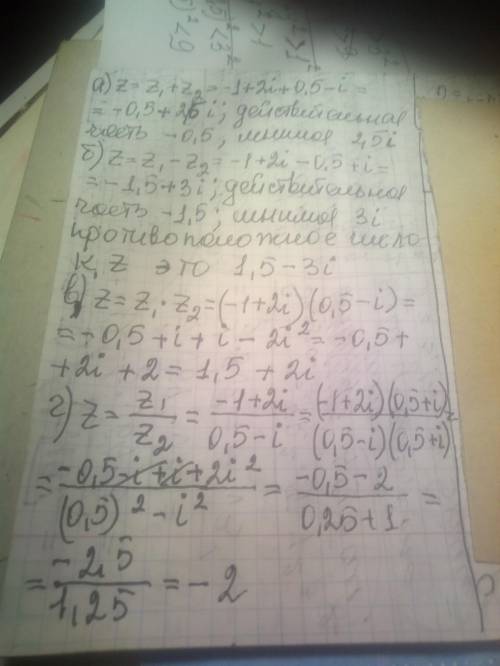 5² < 3²
)² < 9
а) z = z₁ + z₂ = -1 + 2i + 0,5 - i =
= -0,5 + 2,5i; действительная
часть -0,5; мнимая 2,5i
б) z = z₁ - z₂ = -1 + 2i - 0,5 + i =
= -1,5 + 3i; действительная
часть -1,5; мнимая 3i
противоположное число
к z это 1,5 - 3i
в) z = z₁ · z₂ = (-1 + 2i)(0,5 - i) =
= -0,5 + i + i - 2i² = -0,5 +
+ 2i + 2 = 1,5 + 2i
г) z = z₁/z₂ = (-1 + 2i)/(0,5 - i) = (-1 + 2i)(0,5 + i)/(0,5 - i)(0,5 + i) =
= (-0,5 - i + i + 2i²)/((0,5)² - i²) = (-0,5 - 2)/(0,25 + 1) =
= -2,5/1,25 = -2